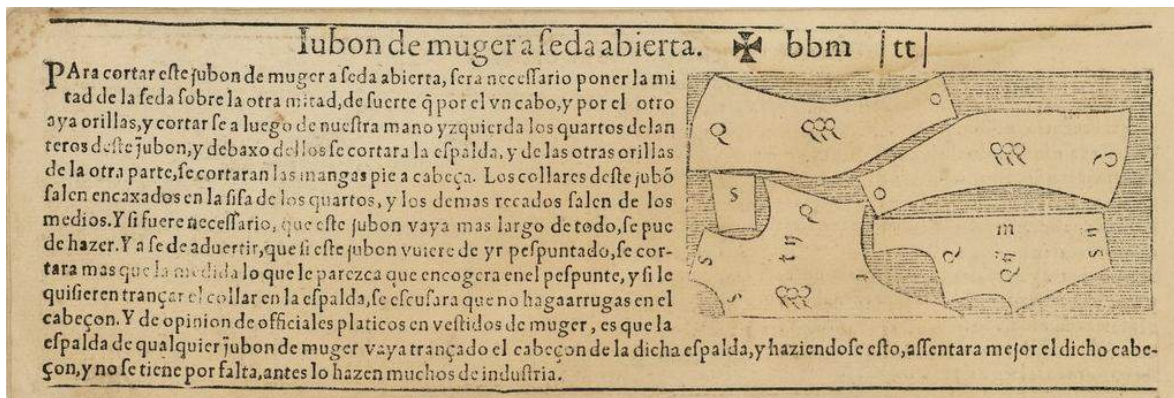 Iubon de muger a ſeda abierta. ✠ bbm |tt|
PAra cortar eſte jubon de muger a ſeda abierta, ſera neceſſario poner la mi
tad de la ſeda ſobre la otra mitad, de ſuerte q̃ por el vn cabo, y por el otro
aya orillas, y cortar ſe a luego de nueſtra mano yzquierda los quartos delan
teros deſte jubon, y debaxo dellos ſe cortara la eſpalda, y de las otras orillas
de la otra parte, ſe cortaran las mangas pie a cabeça. Los collares deſte jubõ
ſalen encaxados en la ſiſa de los quartos, y los demas recados ſalen de los
medios. Y ſi fuere neceſſario, que eſte jubon vaya mas largo de todo, ſe pue
de hazer. Y a ſe de aduertir, que ſi eſte jubon vuiere de yr peſpuntado, ſe cor-
tara mas que la medida lo que le parezca que encogera enel peſpunte, y ſi le
quiſieren trançar el collar en la eſpalda, ſe eſcuſara que no hagaarrugas en el
cabeçon. Y de opinion de officiales platicos en veſtidos de muger, es que la
eſpalda de qualquier jubon de muger vaya trançado el cabeçon de la dicha eſpalda, y haziendoſe eſto, aſſentara mejor el dicho cabe-
çon, y no ſe tiene por falta, antes lo hazen muchos de induſtria.